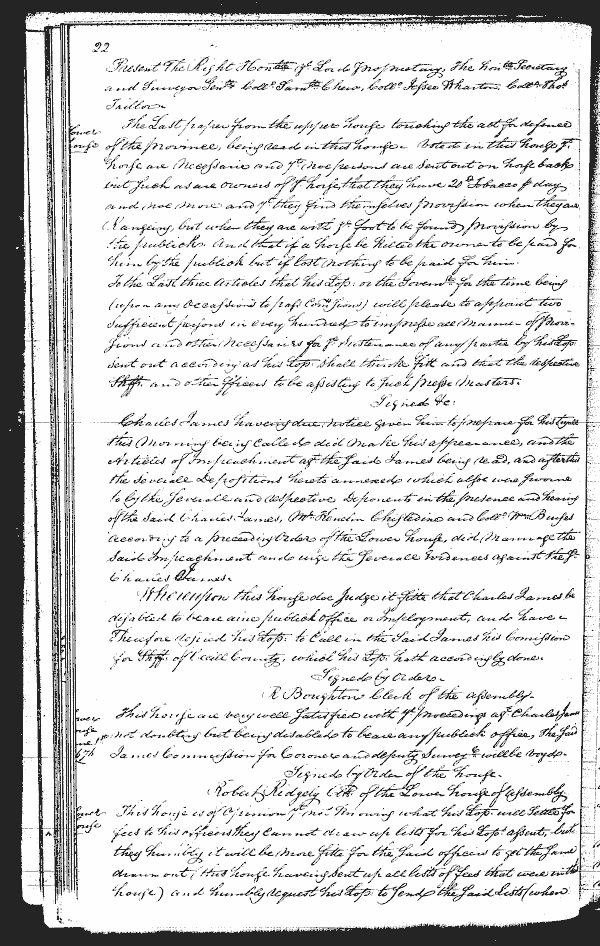 22
Present The Right Honble ye Lord Proprietary, The Honble Secretary
and Surveyor Genll Collo Samll Chew, Collo Jesse Wharton, Collo Tho:
Taillor
The Last paper from the upper house touching the act for defence
Lower house
of the Province, being read in this house. Voted in this house yt
horse are Necessarie and yt noe persons are sent out on horse back
but such as are owners of ye horse, that they have 20l Tobacco p day
and noe more and yt they find themselves Provission when they are
Rangeing, but when they are with ye foot to be found Provission by
the publick. And that if a horse be Killed the owner to be paid for
him by the publick but if lost nothing to be paid for him.
To the Last three Articles that his Lop: or the Governr for the time being
(upon any Occassions to pass Comissions) will please to appoint two
sufficient persons in every hundred to impresse all Manner of Provi-
sions and other Necessaries for ye Mustenance of any partie by his Lop
sent out according as his Lop: shall thinke fitt and that the respective
Shffs. and other officers to be assisting to such presse Masters.
Signed &c:
Charles James haveing due notice given him to prepare for his tryall
this Morning being called did make his appearance, and the
Articles of Impeachment agt the said James being read, and after this
the severall Depositions hereto annexed which alsoe were sworne
to by the severall and respective Deponents in the presence and hearing
of the said Charles James, Mr Kenelm Cheseldine and Collo Wm Burges
according to a preceding Order of the Lower house, did Mannage the
said Impeachment and urge the severall Evidences against the sd
Charles James.
Whereupon this house doe Judge it fitte that Charles James be
disabled to beare anie publick office or Imployment, and have
Therefore desired his Lop: to Call in the said James his Comission
for Shff. of Cecill County, which his Lop: hath accordingly done.
Signed by Order
R Boughton Clerk of the assembly
This house are very well satisfied with ye Proceedings agt Charles James
not doubting but being disabled to beare any publick office, the said
James Commission for Coroner and deputy Surveyr will be voyd.
Signed by Order of the house.
Robert Ridgely Clk. of the Lower house of assembly
Lower house
This house is of opinion yt not Knowing what his Lop: will settle for
fees to his officers they cannot draw up lists for his Lops assent, but
they humbly it will be more fitte for the said officers to gett the same
drawn out, this house haveing sent up all lists of fees that were in the
house) and humbly request his Lop to send the said Lists (when